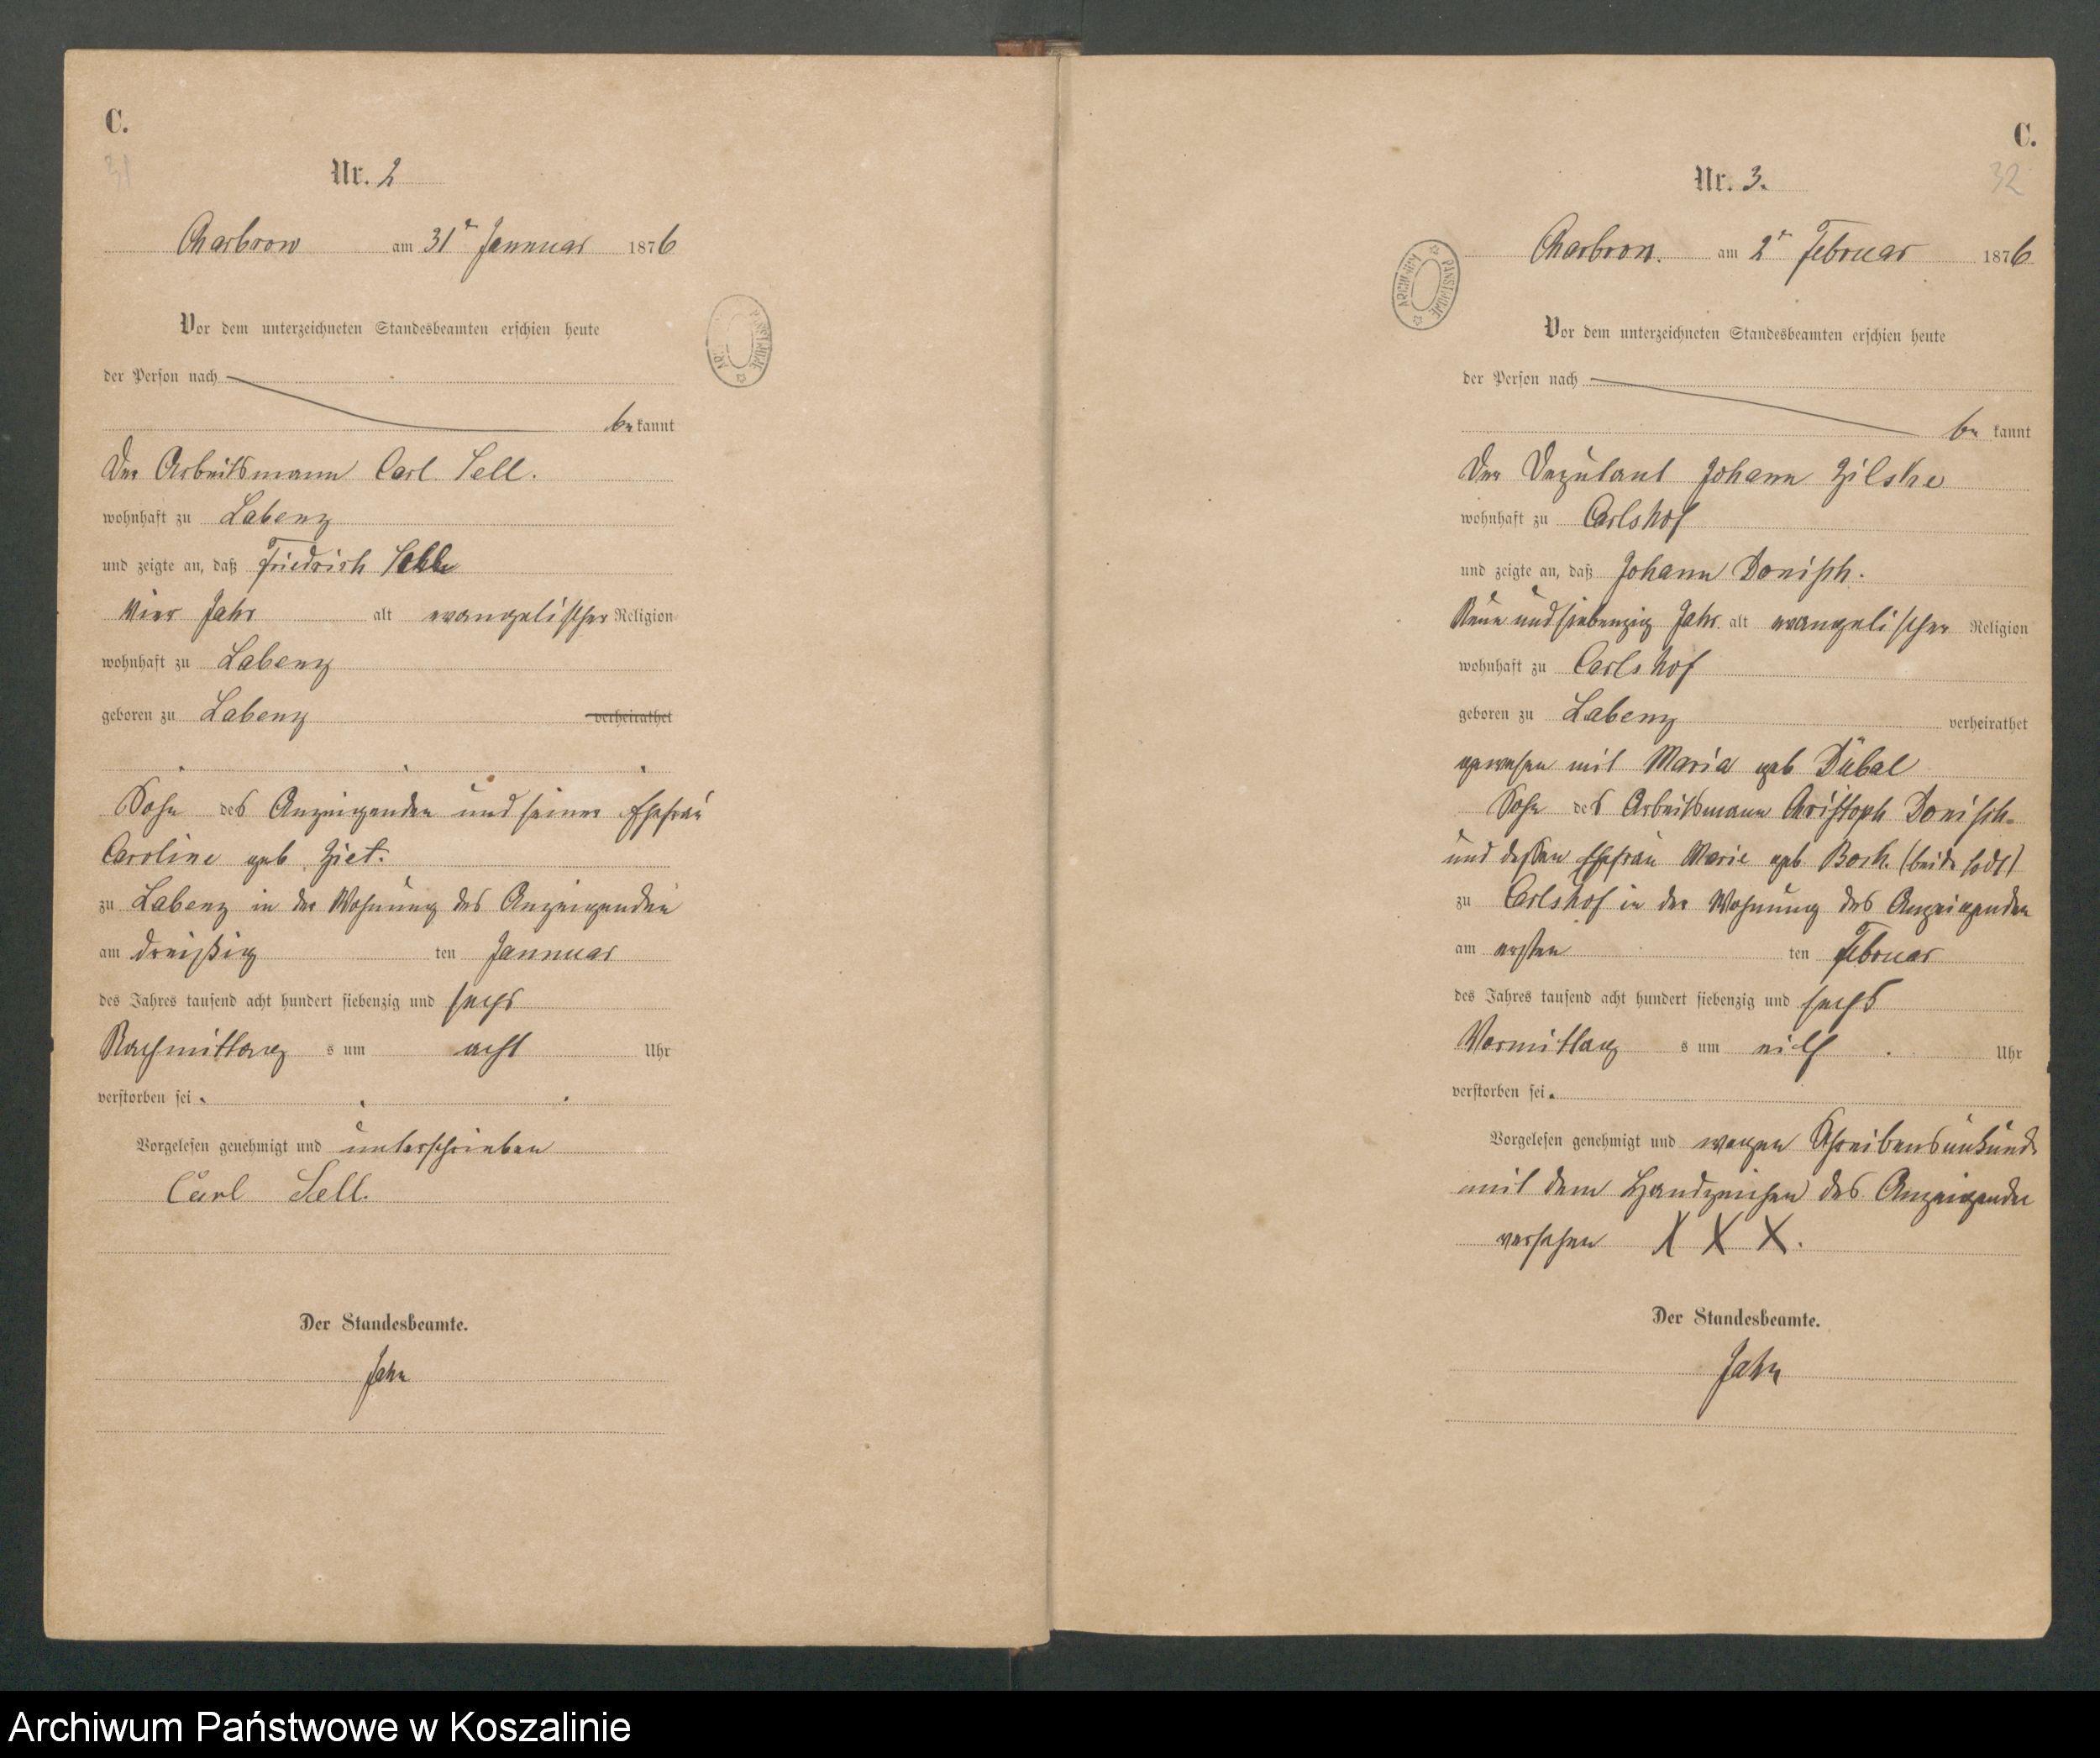 C.
31
Nr. 2
Charbrow am 31t Jannuar 1876
Vor dem unterzeichneten Standesbeamten erschien heute
der Person nach
be kannt
Der Arbeitsmann Carl Sell.
wohnhaft zu Labenz
und zeigte an, daß Friedrich Sell
vier Jahr alt evangelischer Religion
wohnhaft zu Labenz
geboren zu Labenz verheirathet
Sohn des Anzeigenden und seiner Ehefrau
Caroline geb. Ziet.
zu Labenz in der Wohnung des Anzeigenden
am dreißig ten Jannuar
des Jahres tausend acht hundert siebenzig und sechs
Nachmittag s um acht Uhr
verstorben sei.
Vorgelesen genehmigt und unterschrieben
Carl Sell.
Der Standesbeamte.
Jahn
C.
32
Nr. 3.
Charbrow. am 2t Februar 1876
ARCHIWUM PAŃSTWOWE
Vor dem unterzeichneten Standesbeamten erschien heute
der Person nach
be kannt
Der Deputant Johann Zilske
wohnhaft zu Carlshof
und zeigte an, daß Johann Donisch.
Neun und siebenzig Jahr alt evangelischer Religion
wohnhaft zu Carlshof
geboren zu Labenz verheirathet
gewesen mit Maria geb Dübal
Sohn des Arbeitsmann Christoph Donisch
und dessen Ehefrau Marie geb. Bock. (beide todt)
zu Carlshof in der Wohnung des Anzeigenden
am ersten ten Februar
des Jahres tausend acht hundert siebenzig und sechs
Vormittag s um eilf Uhr
verstorben sei.
Vorgelesen genehmigt und wegen Schreibensunkunde
mit dem Handzeichen des Anzeigenden
versehen X X X.
Der Standesbeamte.
Jahn
Archiwum Państwowe w Koszalinie